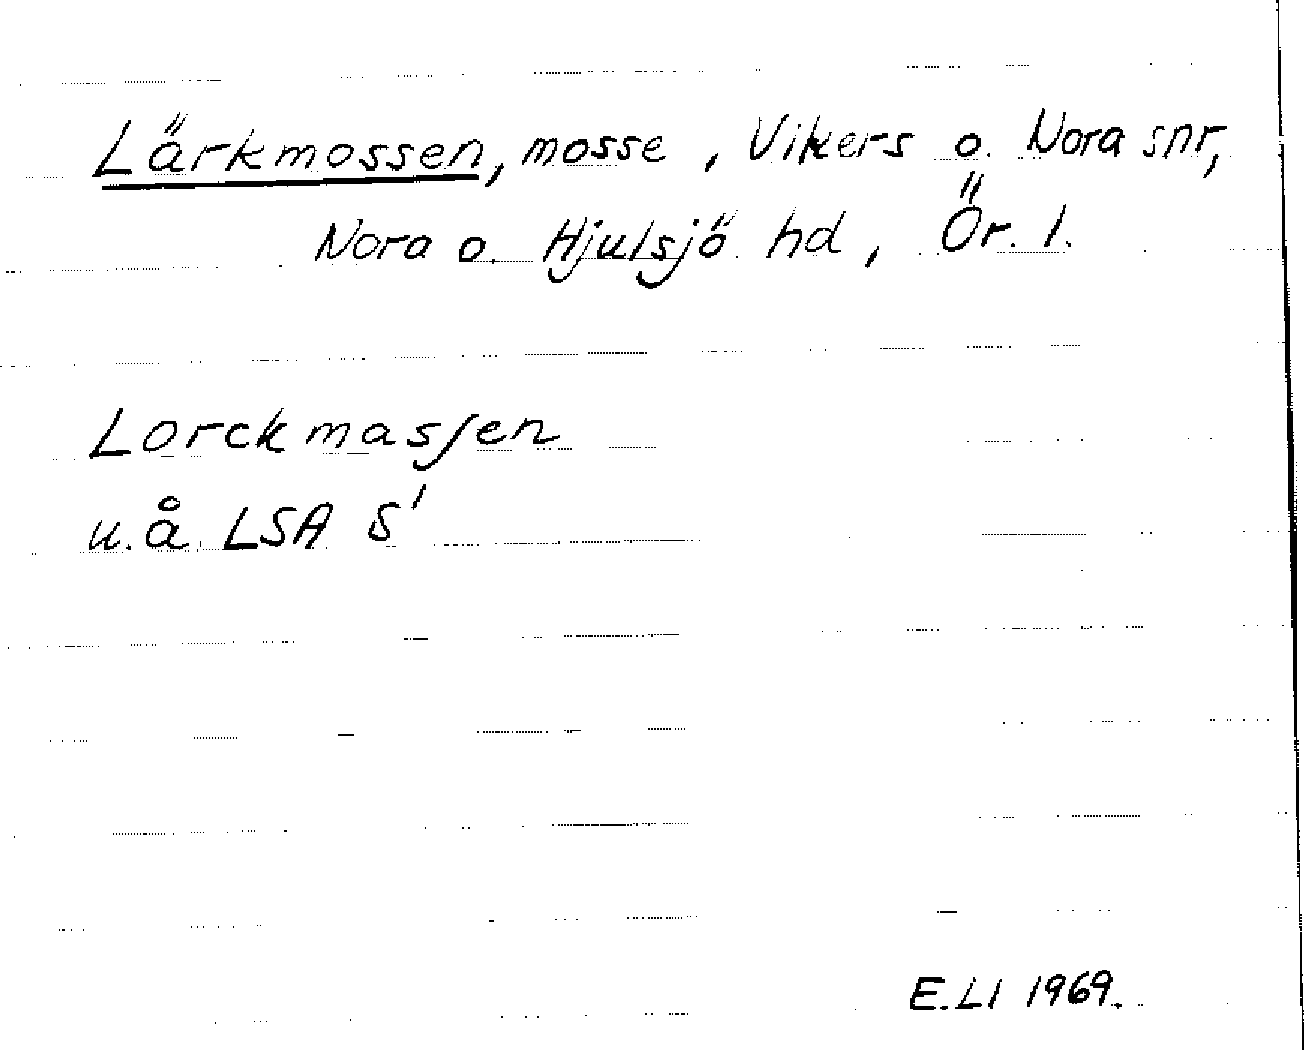 Lärkmossen, mosse, Vikers o. Nora snr,
Nora o. Hjulsjö hd, Ör. l.
Lorckmasſen
u.å. LSA S'
E.LI 1969.